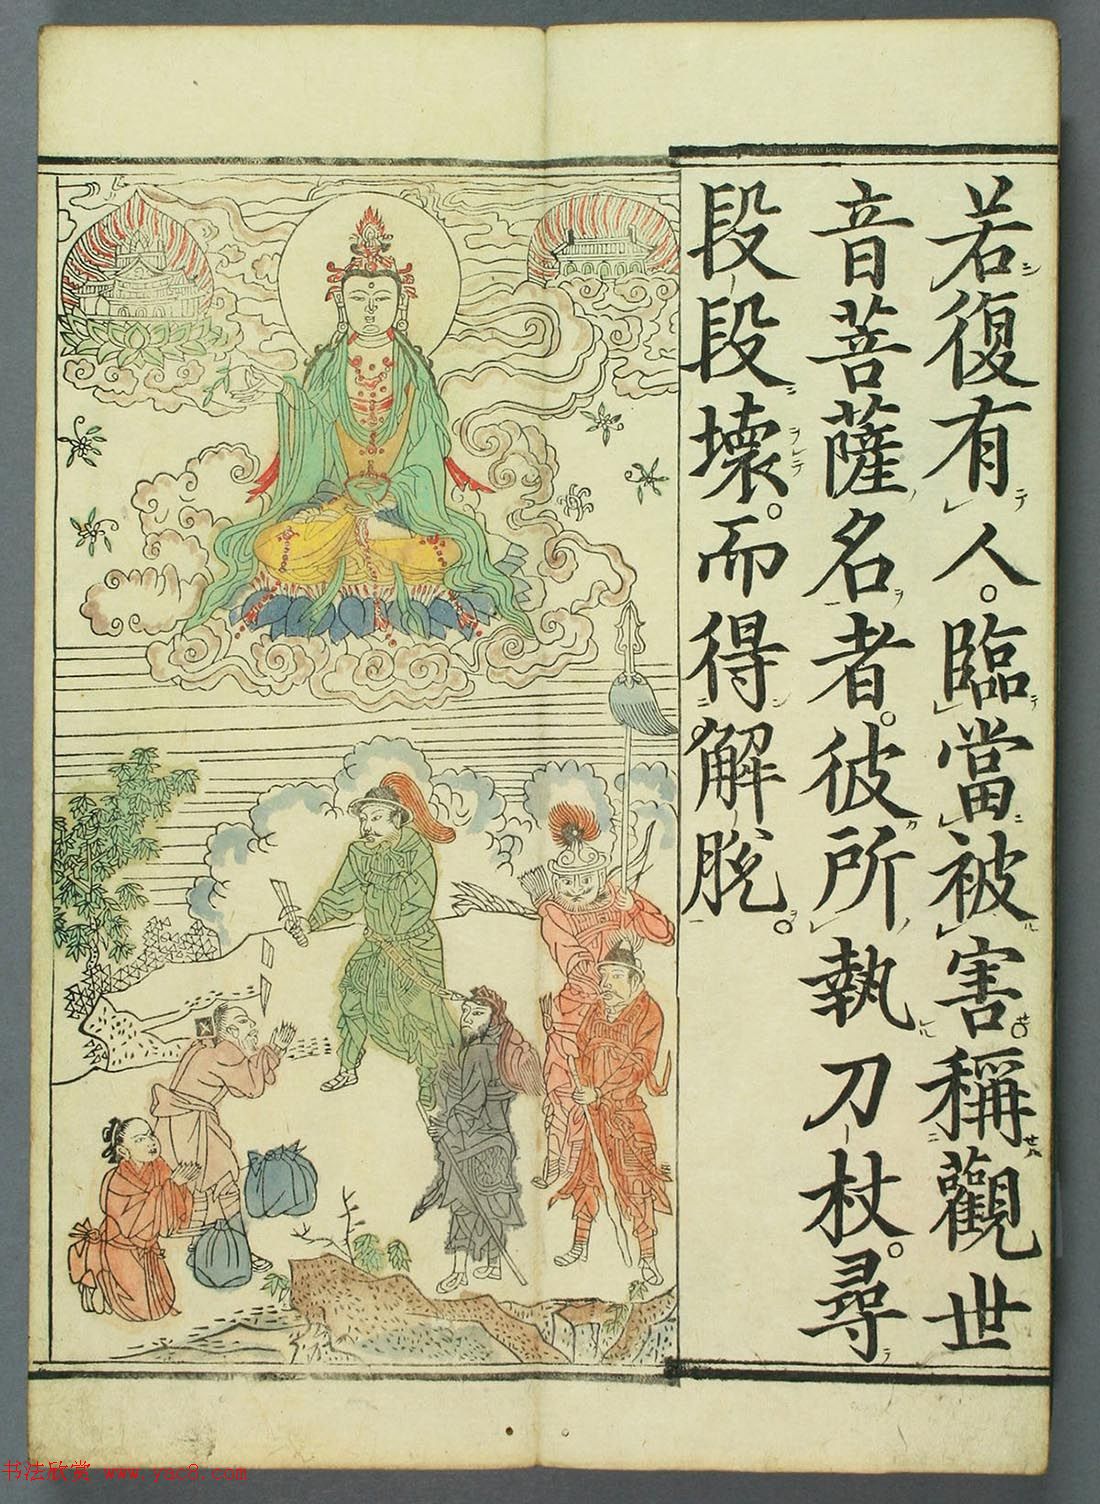 若復有人。臨當被害稱觀世
音菩薩名者。彼所執刀杖尋
段段壞。而得解脫。
书法欣赏 www.yac8.com